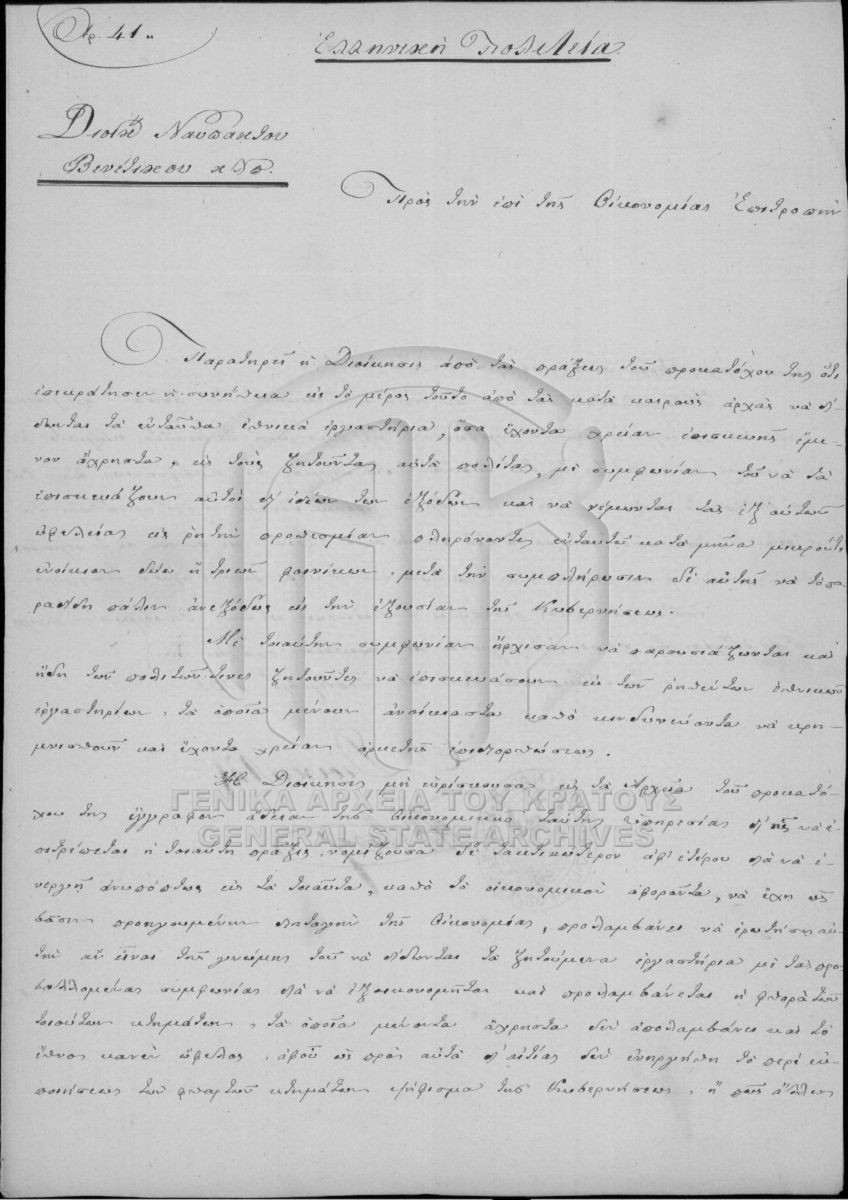 Αρ. 41..
Ἑλληνικὴ Πολιτεία.
Διοικ. Ναυπάκτου
Βενετίκου κ λπ.
Πρὸς τὴν ἐπὶ τῆς Οἰκονομίας Ἐπιτροπὴν
Παρατηρεῖ ἡ Διοίκησις ἀπὸ τὰς πράξεις τοῦ προκατόχου της ὅτι
ἐπεκράτησεν ἡ συνήθεια εἰς τὸ μέρος τοῦτο ἀπὸ τὰς κατὰ καιροὺς ἀρχὰς νὰ δί
δωνται τὰ ἐνταῦθα ἐθνικὰ ἐργαστήρια, ὅσα ἔχοντα χρείαν ἐπισκευῆς ἔμε
νον ἄχρηστα, εἰς τοὺς ζητοῦντας αὐτὰ πολίτας, μὲ συμφωνίαν τοῦ νὰ τὰ
ἐπισκευάζουν αὐτοὶ δι' ἰδίων των ἐξόδων καὶ νὰ νέμωνται τὰς ἐξ αὐτῶν
ὠφελείας εἰς ῥητὴν προθεσμίαν πληρόνοντες ἐνταυτῷ κατὰ μῆνα μικρόν τι
ἐνοίκιον δύω ἢ τριῶν φοινίκων, μετὰ τὴν συμπλήρωσιν δὲ αὐτῆς νὰ τὸ πα
ραδίδῃ πάλιν ἀνεξόδως εἰς τὴν ἐξουσίαν τῆς Κυβερνήσεως.
Μὲ τοιαύτην συμφωνίαν ἤρχισαν νὰ παρουσιάζωνται καὶ
ἤδη τῶν πολιτῶν τινες ζητοῦντες νὰ ἐπισκευάσουν ἐκ τῶν ῥηθέντων ἐθνικῶν
ἐργαστηρίων, τὰ ὁποῖα μένουν ἀνοίκιαστα καθὸ κινδυνεύοντα νὰ κρη
μνισθοῦν καὶ ἔχοντα χρείαν ἀρκετῆς ἐπιδιορθώσεως.
Ἡ Διοίκησις μὴ εὑρίσκουσα εἰς τὰ Ἀρχεῖα τοῦ προκατό
χου της ἔγγραφον ἄδειαν τῆς οἰκονομικῆς ταύτης ὑπηρεσίας δι' ἧς νὰ ἐ
πιτρέπεται ἡ τοιαύτη πρᾶξις, νομίζουσα δὲ τακτικώτερον ἀφ' ἑτέρου διὰ νὰ ἐ
νεργῇ ἀνυπόπτως εἰς τὰ τοιαῦτα, καθὸ τὸ οἰκονομικὸν ἀφορῶντα, νὰ ἔχῃ ὡς
βάσιν προηγουμένην διαταγὴν τῆς Οἰκονομίας, προλαμβάνει νὰ ἐρωτήσῃ αὐ
τὴν ἂν εἶναι τῆς γνώμης τοῦ νὰ δίδωνται τὰ ζητούμενα ἐργαστήρια μὲ τὰς προ
βαλλομένας συμφωνίας διὰ νὰ ἐξοικονομῆται καὶ προλαμβάνεται ἡ φθορὰ τῶν
τοιούτων κτημάτων, τὰ ὁποῖα μένοντα ἄχρηστα δὲν ἀπολαμβάνει καὶ τὸ
ἔθνος κανὲν ὄφελος, ἀφοῦ ὡς πρὸς αὐτὰ δι' αἰτίας δὲν ἐνηργήθη τὸ περὶ ἐκ
ποιήσεως τῶν φθαρτῶν κτημάτων ψήφισμα τῆς Κυβερνήσεως, ἢ πῶς ἄλλως
ΓΕΝΙΚΑ ΑΡΧΕΙΑ ΤΟΥ ΚΡΑΤΟΥΣ
GENERAL STATE ARCHIVES